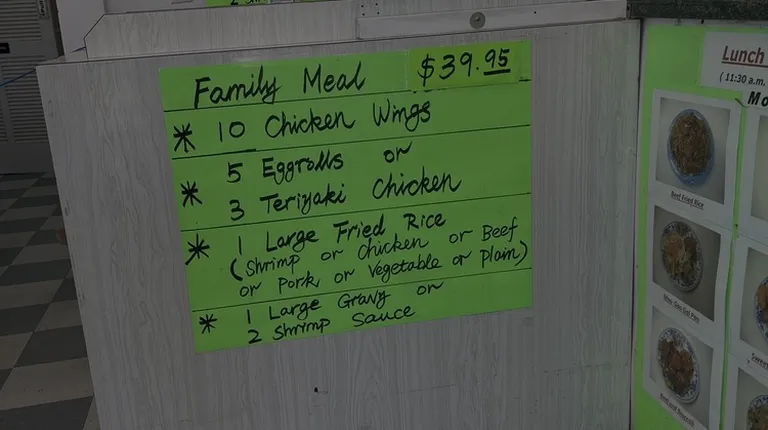 Family Meal $39.95
* 10 Chicken Wings
* 5 Eggrolls or
3 Teriyaki Chicken
* 1 Large Fried Rice
(Shrimp or Chicken or Beef
or Pork or Vegetable or Plain)
* 1 Large Gravy or
2 Shrimp Sauce
Lunch
(11:30 a.m,
Mo
Beef Fried Rice